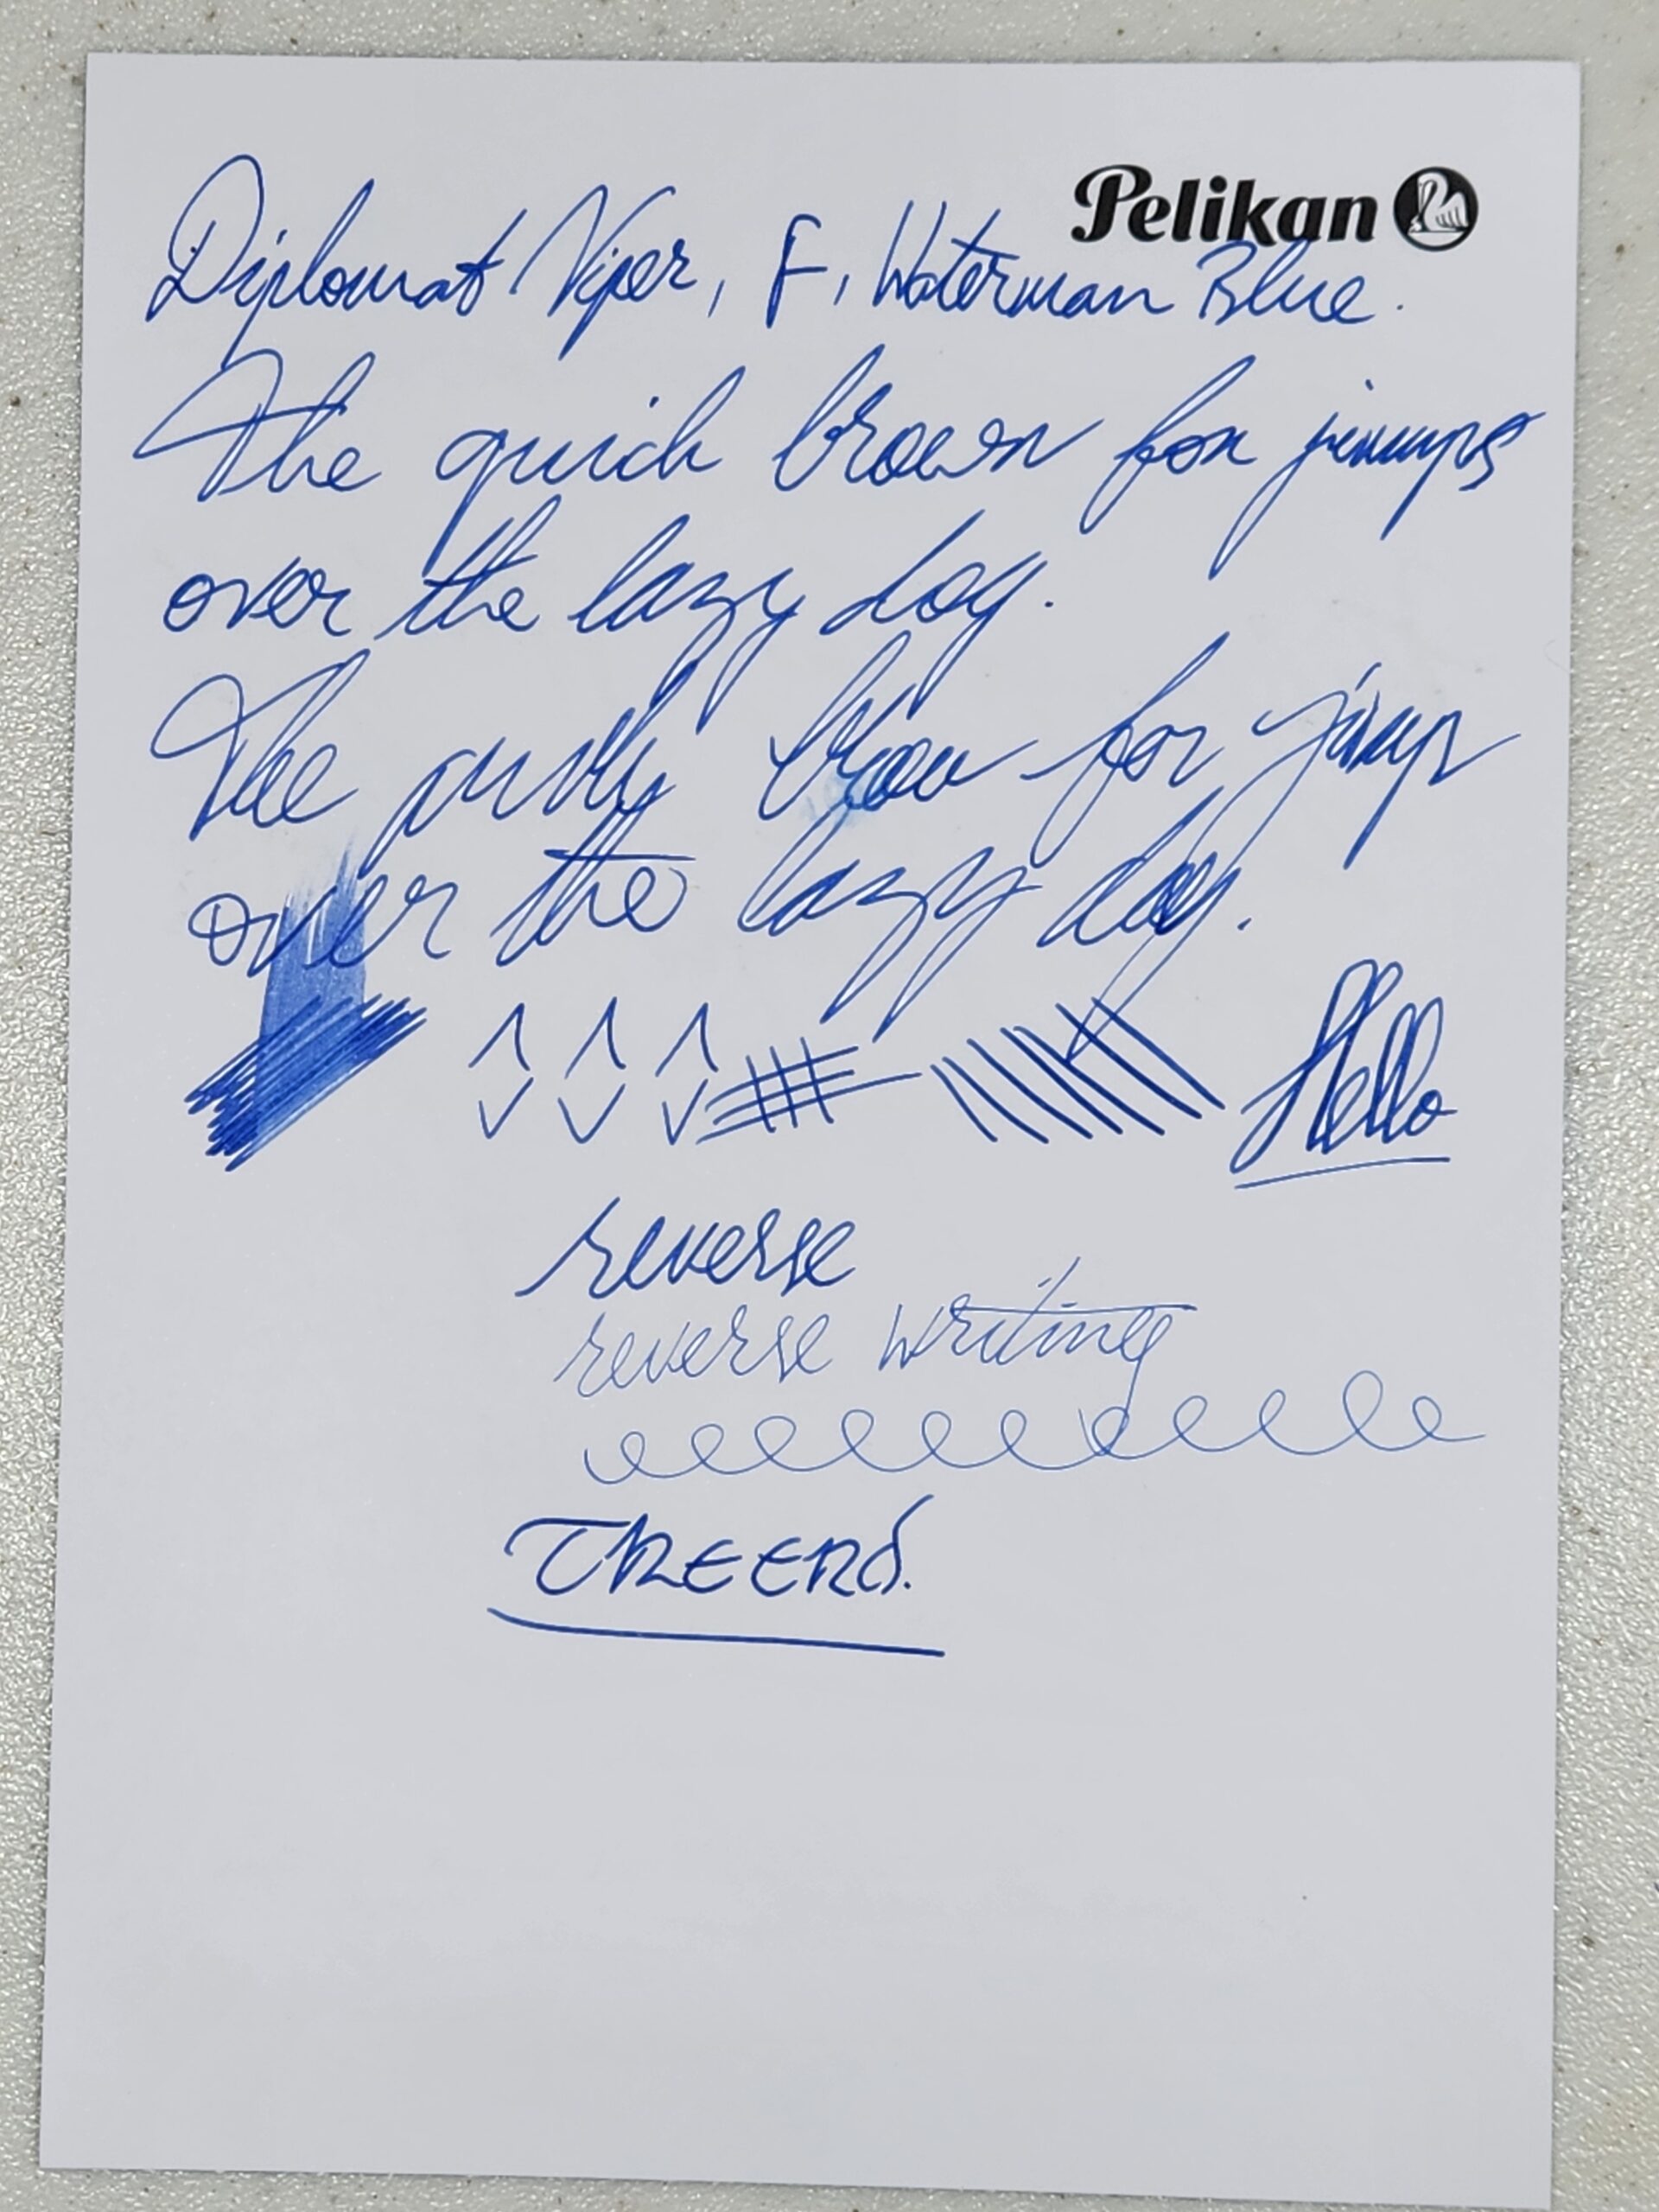 Pelikan
Diplomat Viper, F, Waterman Blue.
The quick brown fox jumps
over the lazy dog.
The brow fox jumps
over the lazy dog.
Hello
reverse
reverse writing